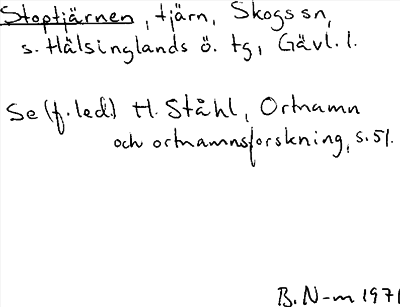 Stoptjärnen, tjärn, Skogs sn,
s. Hälsinglands ö. tg, Gävl. l.
Se (f. led.) H. Ståhl, Ortnamn
och ortnamnsforskning, s. 51.
B. N-m 1971